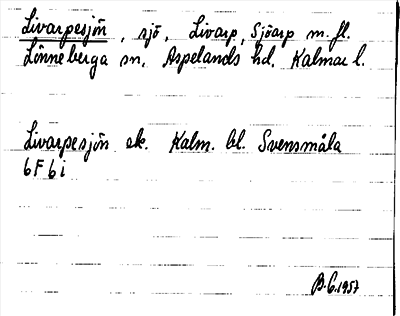 Livarpesjön, sjö, Livarp, Sjöarp m.fl.
Lönneberga sn, Aspelands hd, Kalmar l.
Livarpesjön ek. Kalm. bl. Svensmåla
6F 6i
B.G. 1957